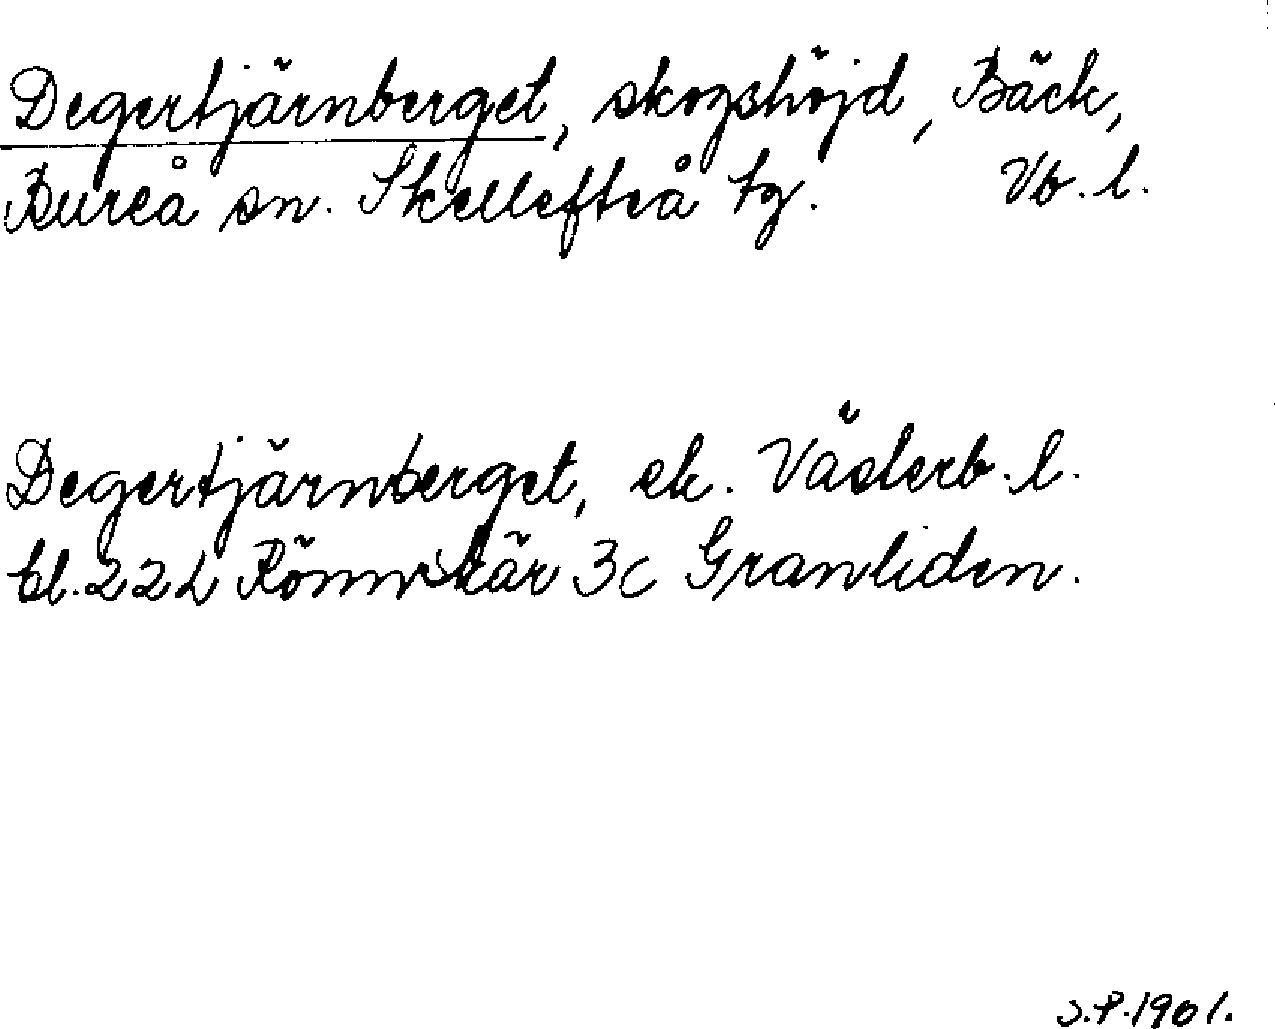 Degertjärnberget, skogshöjd, Bäck,
Bureå sn. Skellefteå tg. Vb. l.
Degertjärnberget, ek. Västerb. l.
bl. 22 L Rönnskär 3c Granliden.
S.P. 1961.